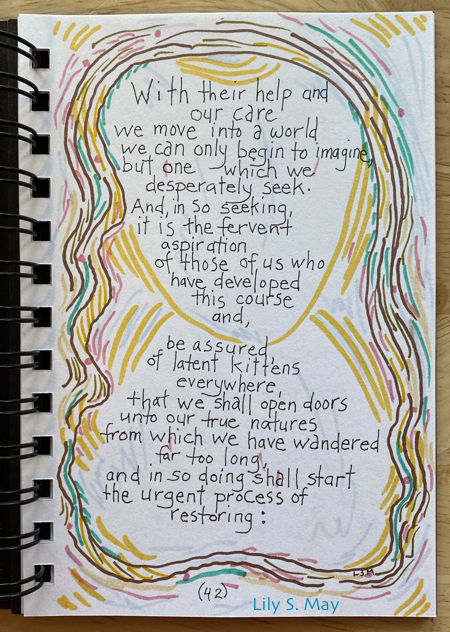 With their help and
our care
we move into a world
we can only begin to imagine,
but one which we
desperately seek.
And, in so seeking,
it is the fervent
aspiration
of those of us who
have developed
this course
and,
be assured,
of latent kittens
everywhere,
that we shall open doors
unto our true natures
from which we have wandered
far too long,
and in so doing shall start
the urgent process of
restoring:
L.S.M.
(42)
Lily S. May